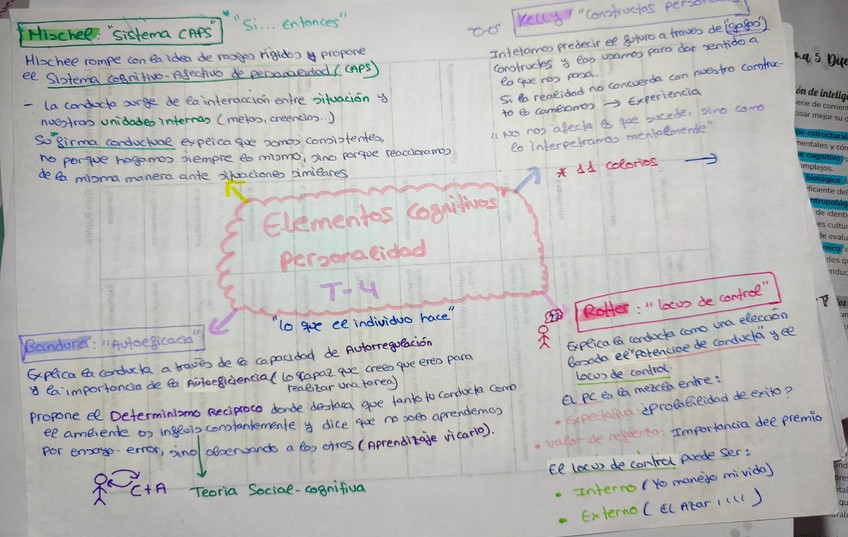 Mischel: "Sistema CAPS"
"Si... entonces"
Mischel rompe con la idea de rasgos rígidos y propone
el Sistema cognitivo-Afectivo de personalidad (CAPS)
- La conducta surge de la interacción entre situación y
nuestras unidades internas (metas, creencias..)
Su firma conductual explica que somos consistentes,
no porque hagamos siempre lo mismo, sino porque reaccionamos
de la misma manera ante situaciones similares
Kelly: "Constructos
Intetamos predecir el futuro a través de ("gafas")
constructos y los usamos para dar sentido a
lo que nos pasa.
Si la realidad no concuerda con nuestro construc-
to lo cambiamos → Experiencia
"No nos afecta lo que sucede, sino como
lo interpretamos mentalmente"
* 11 colorios →
Elementos cognitivos
personalidad
T-4
"Lo que el individuo hace"
Bandura: "Autoeficacia"
Explica la conducta a través de la capacidad de Autorregulación
y la importancia de la Autoeficiencia (lo capaz que crees que eres para
realizar una tarea)
Propone el Determinismo Reciproco donde destaca que tanto tu conducta como
el ambiente os influís constantemente y dice que no solo aprendemos
por ensayo-error, sino observando a los otros (Aprendizaje vicario).
C+A
Teoria Social-cognitiva
Rotter: "locus de control"
Explica la conducta como una elección
basada el "Potencial de conducta" y el
locus de control.
EL PC es la mezcla entre:
• Expectativa: ¿Probabilidad de exito?
• Valor de refuerzo: Importancia del premio
El locus de control puede ser:
• Interno (Yo manejo mi vida)
• Externo (El Azar ,,,,)